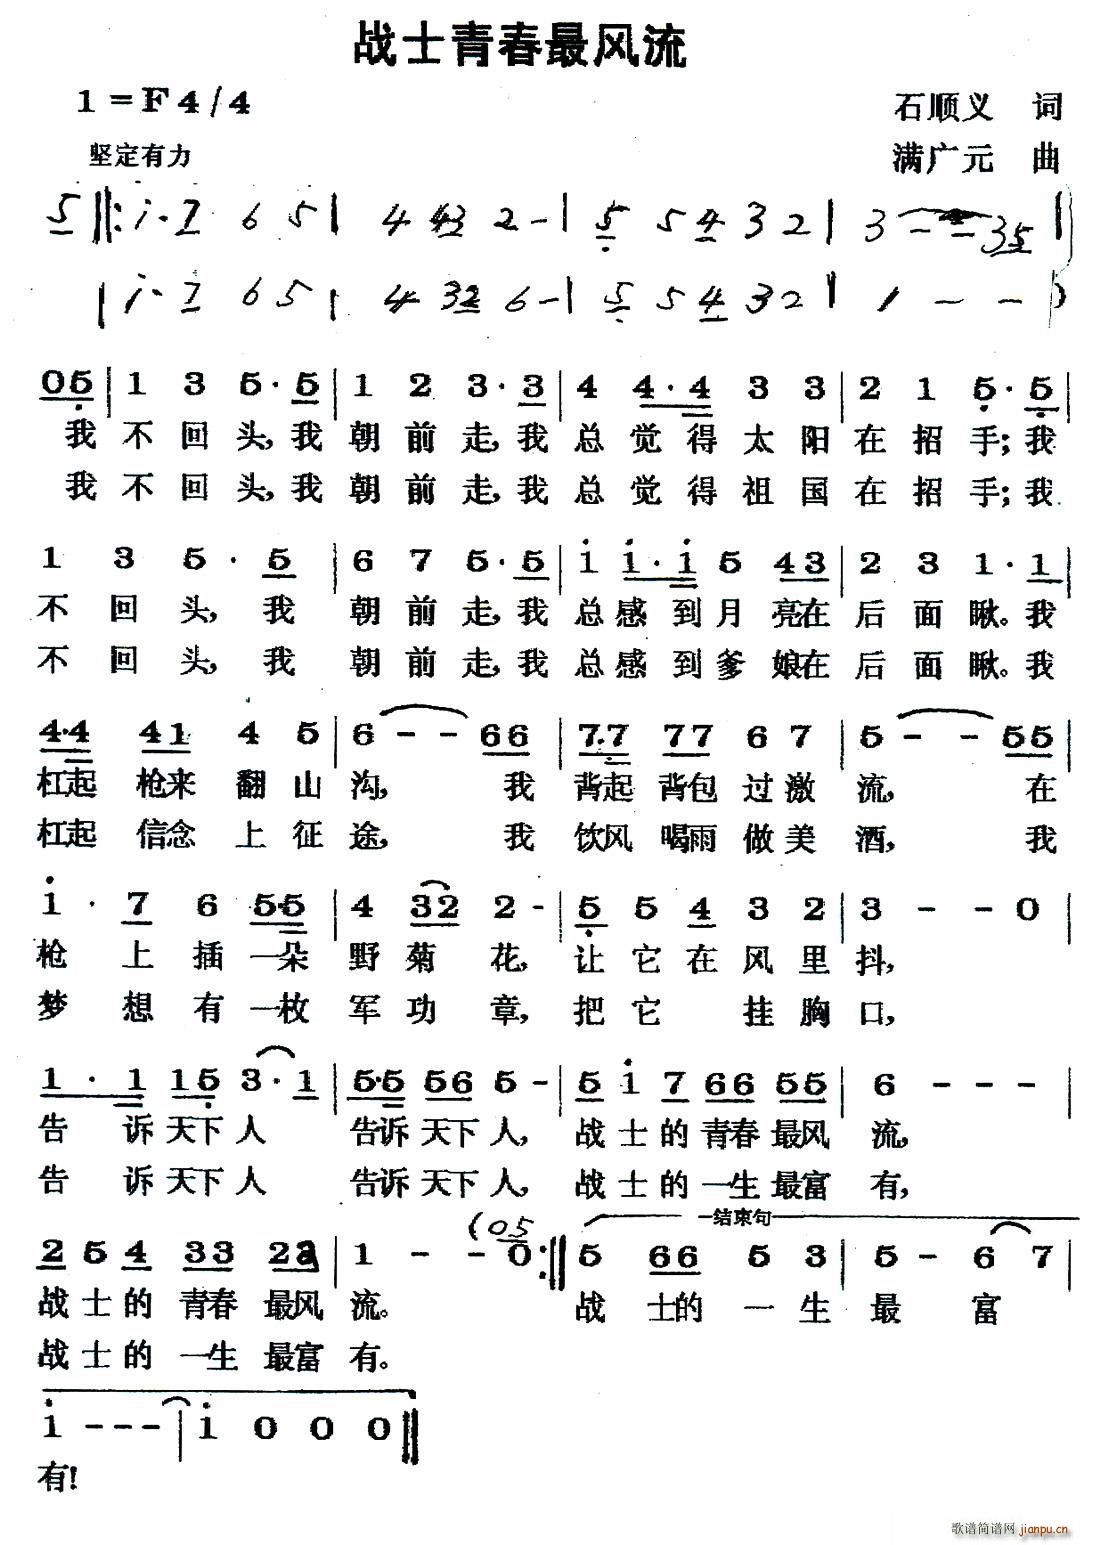 战士青春最风流
1=F 4/4
石顺义 词
坚定有力
满广元 曲
5 ‖: i· 7 6 5 | 4 43 2 - | 5 5 4 3 2 | 3 - - 35 |
| i· 7 6 5 | 4 32 6 - | 5 5 4 3 2 | 1 - - )
05 | 1 3 5· 5 | 1 2 3· 3 | 4 4·4 3 3 | 2 1 5· 5 |
我 不 回 头,我 朝 前 走,我 总 觉 得 太 阳 在 招 手;我
我 不 回 头,我 朝 前 走,我 总 觉 得 祖 国 在 招 手;我
1 3 5· 5 | 6 7 5· 5 | i i·i 5 43 | 2 3 1· 1 |
不 回 头, 我 朝 前 走,我 总 感 到 月 亮在 后 面 瞅。我
不 回 头, 我 朝 前 走,我 总 感 到 爹 娘在 后 面 瞅。我
4·4 41 4 5 | 6 - - 66 | 7·7 77 6 7 | 5 - - 55 |
杠起 枪来 翻 山 沟, 我 背起 背包 过 激 流, 在
杠起 信念 上 征 途, 我 饮风 喝雨 做 美 酒, 我
i · 7 6 5·5 | 4 32 2 - | 5 5 4 3 2 | 3 - - 0 |
枪 上 插 一朵 野 菊 花, 让 它 在 风 里 抖,
梦 想 有 一枚 军 功 章, 把 它 挂 胸 口,
1 · 1 15 3· 1 | 5·5 56 5 - | 5 i 7 66 55 | 6 - - - |
告 诉 天下 人 告诉 天下 人, 战 士 的 青春 最风 流,
告 诉 天下 人 告诉 天下 人, 战 士 的 一生 最富 有,
(05 结束句
2 5 4 33 23 | 1 - - 0 :‖ 5 66 5 3 | 5 - 6 7 |
战 士 的 青春 最风 流。 战 士的 一 生 最 富
战 士 的 一生 最富 有。
i - - - | i 0 0 0 ‖
有!
歌谱简谱网 jianpu.cn